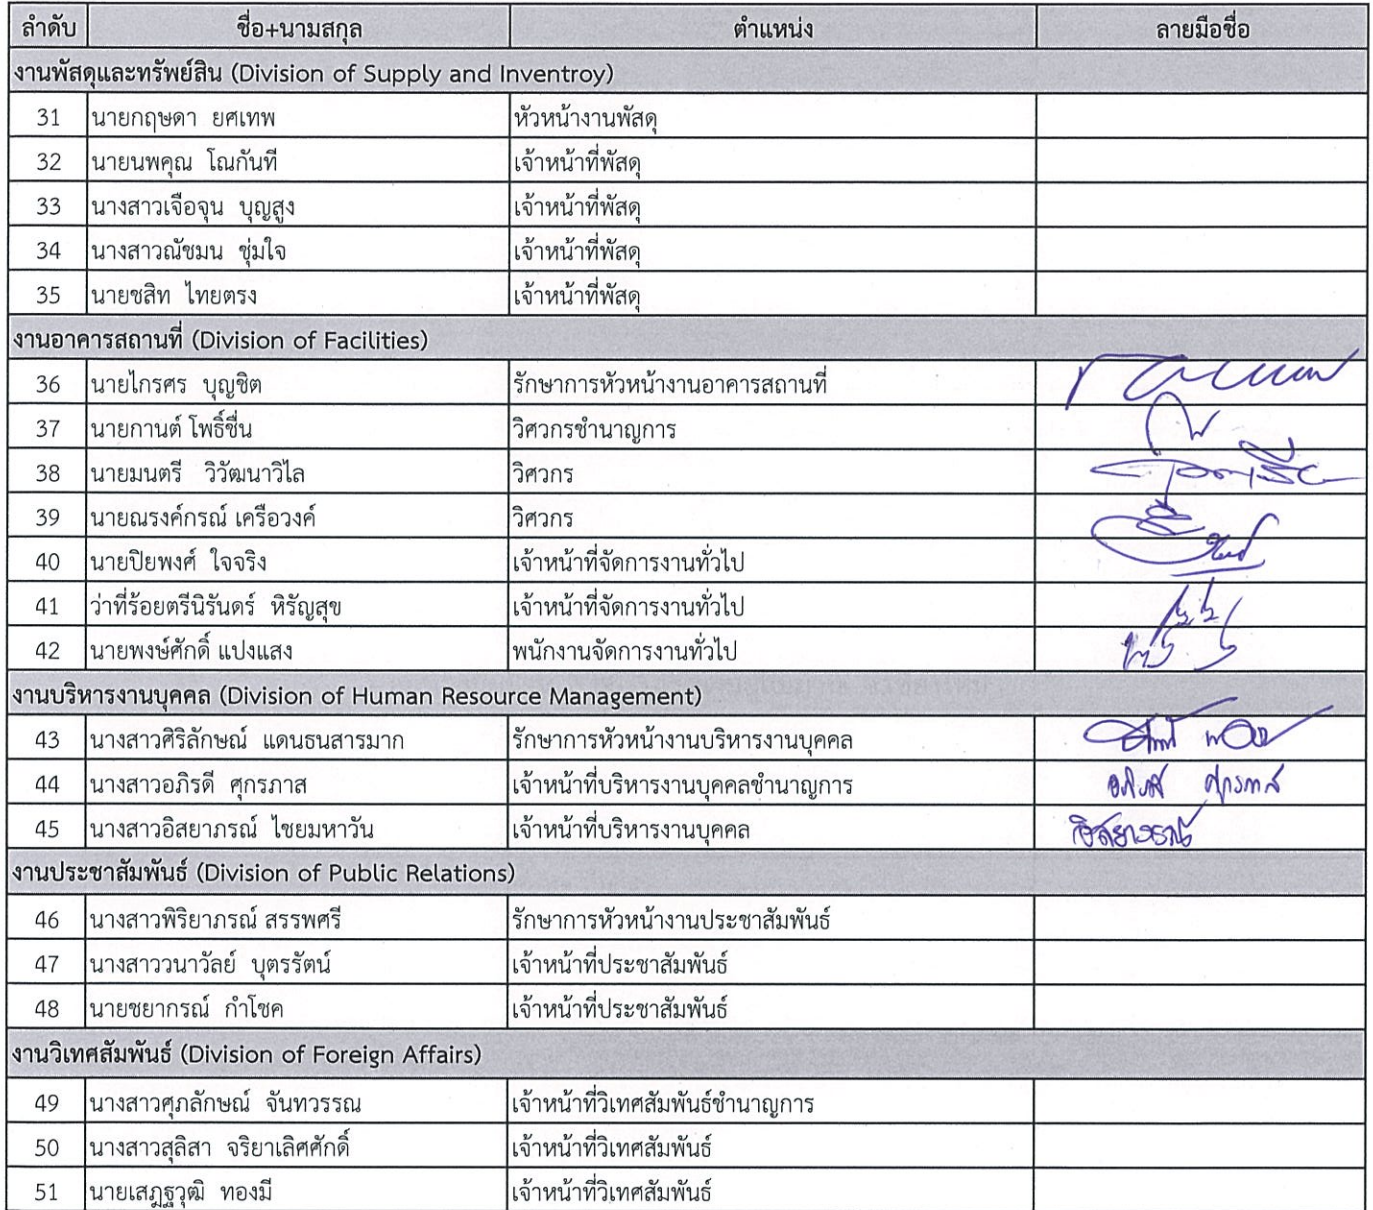 ลำดับ ชื่อ+นามสกุล ตำแหน่ง ลายมือชื่อ
งานพัสดุและทรัพย์สิน (Division of Supply and Inventroy)
31 นายกฤษดา ยศเทพ หัวหน้างานพัสดุ
32 นายนพคุณ โณกันที เจ้าหน้าที่พัสดุ
33 นางสาวเจือจุน บุญสูง เจ้าหน้าที่พัสดุ
34 นางสาวณัชมน ชุ่มใจ เจ้าหน้าที่พัสดุ
35 นายชสิท ไทยตรง เจ้าหน้าที่พัสดุ
งานอาคารสถานที่ (Division of Facilities)
36 นายไกรศร บุญชิต รักษาการหัวหน้างานอาคารสถานที่
37 นายกานต์ โพธิ์ชื่น วิศวกรชำนาญการ
38 นายมนตรี วิวัฒนาวิไล วิศวกร
39 นายณรงค์กรณ์ เครือวงค์ วิศวกร
40 นายปิยพงศ์ ใจจริง เจ้าหน้าที่จัดการงานทั่วไป
41 ว่าที่ร้อยตรีนิรันดร์ หิรัญสุข เจ้าหน้าที่จัดการงานทั่วไป
42 นายพงษ์ศักดิ์ แปงแสง พนักงานจัดการงานทั่วไป
งานบริหารงานบุคคล (Division of Human Resource Management)
43 นางสาวศิริลักษณ์ แดนธนสารมาก รักษาการหัวหน้างานบริหารงานบุคคล
44 นางสาวอภิรดี ศุกรภาส เจ้าหน้าที่บริหารงานบุคคลชำนาญการ อภิรดี ศุกรภาส
45 นางสาวอิสยาภรณ์ ไชยมหาวัน เจ้าหน้าที่บริหารงานบุคคล อิสยาภรณ์
งานประชาสัมพันธ์ (Division of Public Relations)
46 นางสาวพิริยาภรณ์ สรรพศรี รักษาการหัวหน้างานประชาสัมพันธ์
47 นางสาววนาวัลย์ บุตรรัตน์ เจ้าหน้าที่ประชาสัมพันธ์
48 นายชยากรณ์ กำโชค เจ้าหน้าที่ประชาสัมพันธ์
งานวิเทศสัมพันธ์ (Division of Foreign Affairs)
49 นางสาวศุภลักษณ์ จันทวรรณ เจ้าหน้าที่วิเทศสัมพันธ์ชำนาญการ
50 นางสาวสุลิสา จริยาเลิศศักดิ์ เจ้าหน้าที่วิเทศสัมพันธ์
51 นายเสฎฐวุฒิ ทองมี เจ้าหน้าที่วิเทศสัมพันธ์